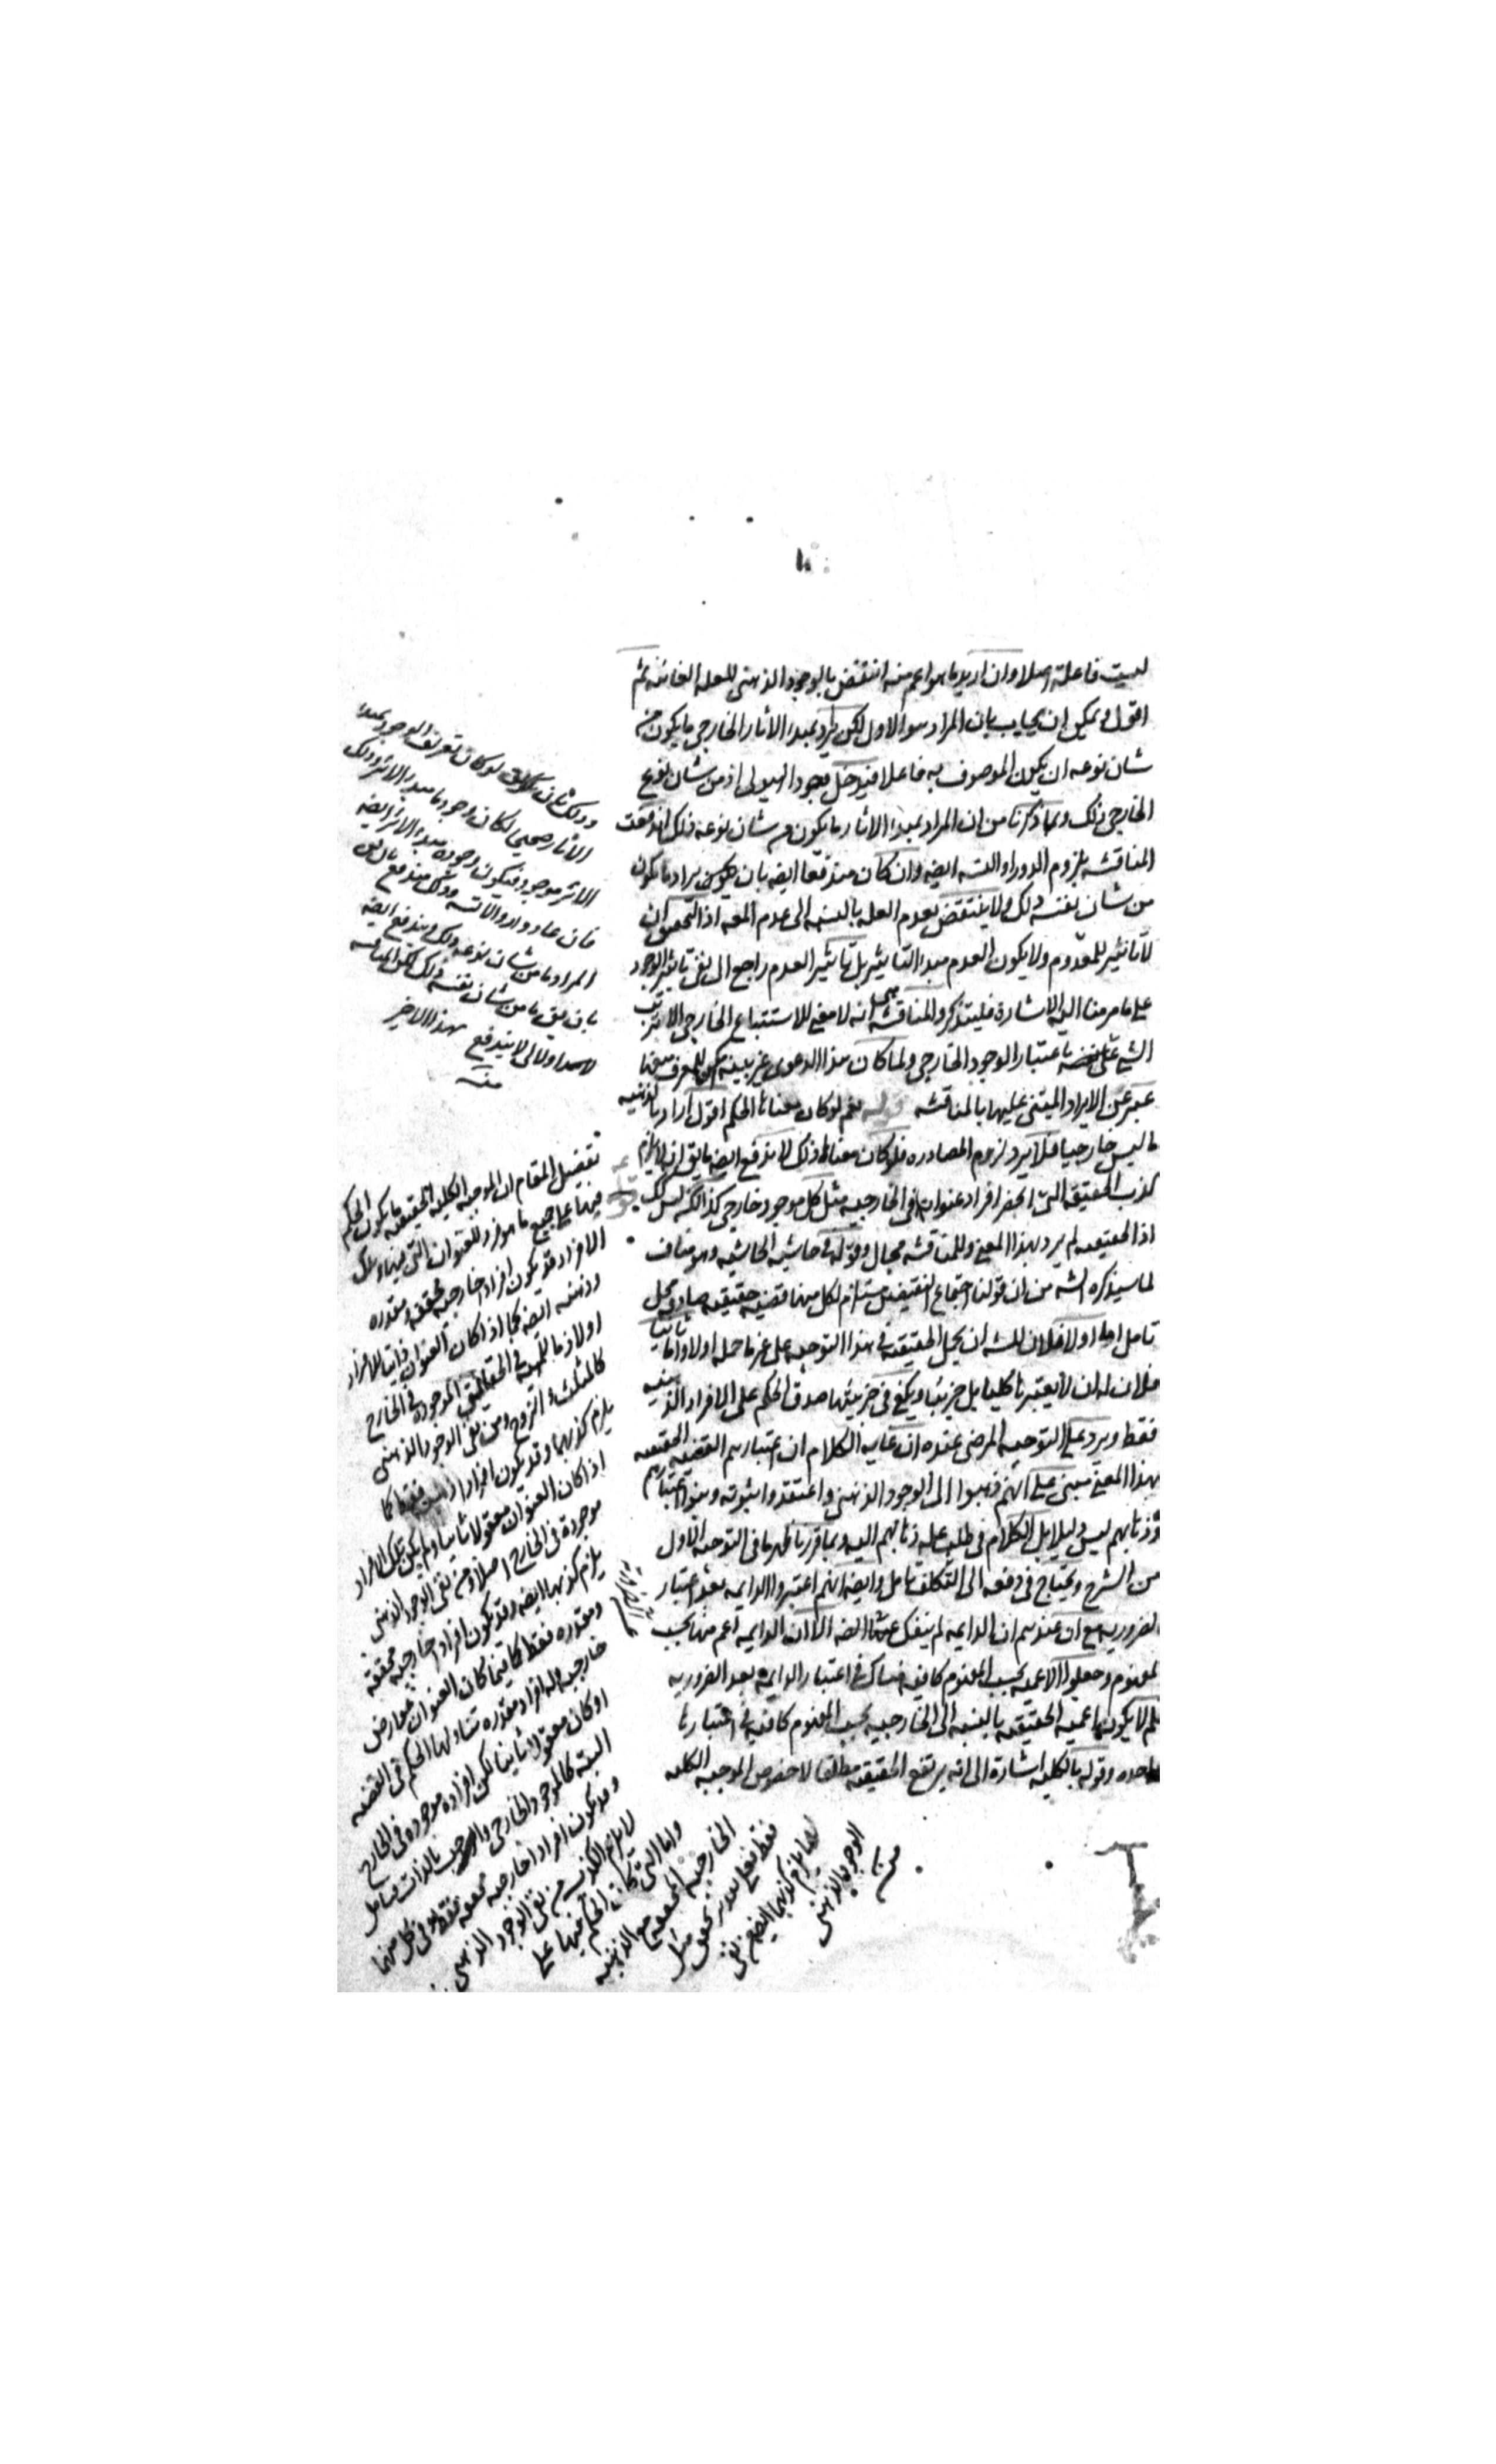 ليست فاعلة اصلا وان اريد ما هو اعم منه انتقض بالوجود الذهنى للعلة الغائية ثم
اقول ويمكن ان يجاب بان المراد هو الاول لكن يراد بمبدء الاثار الخارجى ما يكون من
شان نوعه ان يكون الموصوف به فاعلا فيدخل وجود الهيولى اذ من شان نوع
الخارجى ذلك وبما ذكرنا من ان المراد بمبدء الاثار ما يكون من شان نوعه ذلك اندفعت
المناقشه بلزوم الدور او التسـ ايضه وان كان مندفعا ايضه بان يراد ما يكون
من شان نفسه ذلك ولا ينتقض بعدم العله بالنسبه الى عدم المعـ اذ التحقيق ان
لا تاثير للمعدوم ولا يكون العدم مبدء التاثير بل تاثير العدم راجع الى نفى تاثير الوجود
على ما مر منا اليه الاشارة فليتذكر والمناقشه هى انه لا معنى للاستتباع الخارجى الا ترتب
الشى على باعتبار الوجود الخارجى ولما كان هذا الدعوى غير بينه
عبر عن الايراد المبتنى عليها بالمناقشه قوله نعم لو كان معناها الحكم اقول اراد بالذهنيه
ما ليس خارجيا فلا يرد لزوم المصادره فلو كان معناها ذلك لاندفع ايضه ما يق انه لا يلزم
كذب الحقيقه التى انحصر افراد عنوانها فى الخارجيه مثل كل موجود خارجى كذا لكنه ليس كك
اذ الحقيقيه لم يرد بهذا المعنى وللمناقشه مجال وقوله فى حاشيه الحاشيه وهو مناف
لما سيذكره الشه من ان قولنا اجتماع النقيضين مستلزم لكل منهما قضيه حقيقيه صادقه محل
تامل اما اولا فلان للشه ان يحمل الحقيقيه فى هذا التوجيه على غير ما حمله اولا واما ثانيا
فلان له ان لا يعتبرها كليا بل جزئيا ويكفى فى جزئيتها صدق الحكم على الافراد الذهنيه
فقط ويرد على التوجيه المرضى عنده ان غايه الكلام ان اعتبارهم القضيه الحقيقيه
بهذا المعنى مبنى على انهم ذهبوا الى الوجود الذهنى واعتقدوا ثبوته وبنوا اعتبارهم
وذهابهم ليس دليلا بل الكلام فى طلب عله ذهابهم اليه وبما قررنا ظهر ما فى التوجيه الاول
من الشرح ويحتاج فى دفعه الى التكلف تامل وايضه انهم اعتبروا الدايمه بعد اعتبار
الضروريه مع ان عندهم ان الدايمه لم ينفك عنها ايضه الا ان الدايمه اعم منها بحسب
المفهوم وجعلوا الاعميه بحسب المفهوم كافيه هناك فى اعتبار الدايمه بعد الضروريه
فلم لا يكون اعميه الحقيقيه بالنسبه الى الخارجيه بحسب المفهوم كافيه فى اعتبارها
واحده وقوله بالكليه اشارة الى انه يرتفع الحقيقيه مطلقا لا خصوص الموجبه الكليه
لو كان تعريف الوجود بمبدء
الاثار صحيحا لكان وجود ما مبدء الاثر وذلك
الاثر موجود فيكون وجوده مبدء الاثر ايضه
المراد ما من شان نوعه ذلك ويندفع ايضه
بان يق ما من شان نفسه ذلك لكن المناقشه
لا يندفع بهذا الاخير
منه
تفصيل المقام ان الموجبه الكليه الحقيقيه ما يكون الحكم
فيها على جميع ما هو فرد للعنوان
الافراد قد يكون افرادا خارجيه محققه ومقدره
وذهنيه ايضه كما اذا كان العنوان ذاتيا للافراد
الموجوده فى الخارج
كالمثلث والزوج ومن نفى الوجود الذهنى
يلزم كذبها وقد يكون افرادا
اذا كان العنوان معقولا ثانيا ولم يكن تلك الافراد
موجودة فى الخارج اصلا ومن نفى الوجود الذهنى
يلزم كذبها ايضه وقد يكون افرادا خارجيه محققه
ومقدره فقط كما فيما كان العنوان عوارض
خارجيه وله افراد مقدره تناولها الحكم فى القضيه
او كان معقولا ثانيا لكن افراده موجوده فى الخارج
البته كالموجود الخارجى والواجب بالذات تامل
وقد يكون افرادا خارجيه محققه فقط وفى كل منهما
لا يلزم الكذب من نفى الوجود الذهنى
واما التى كان الحكم فيها على
الخارجيه المحققه مع الذهنيه
يلزم كذبها ايضه من نفى
الوجود الذهنى
منه